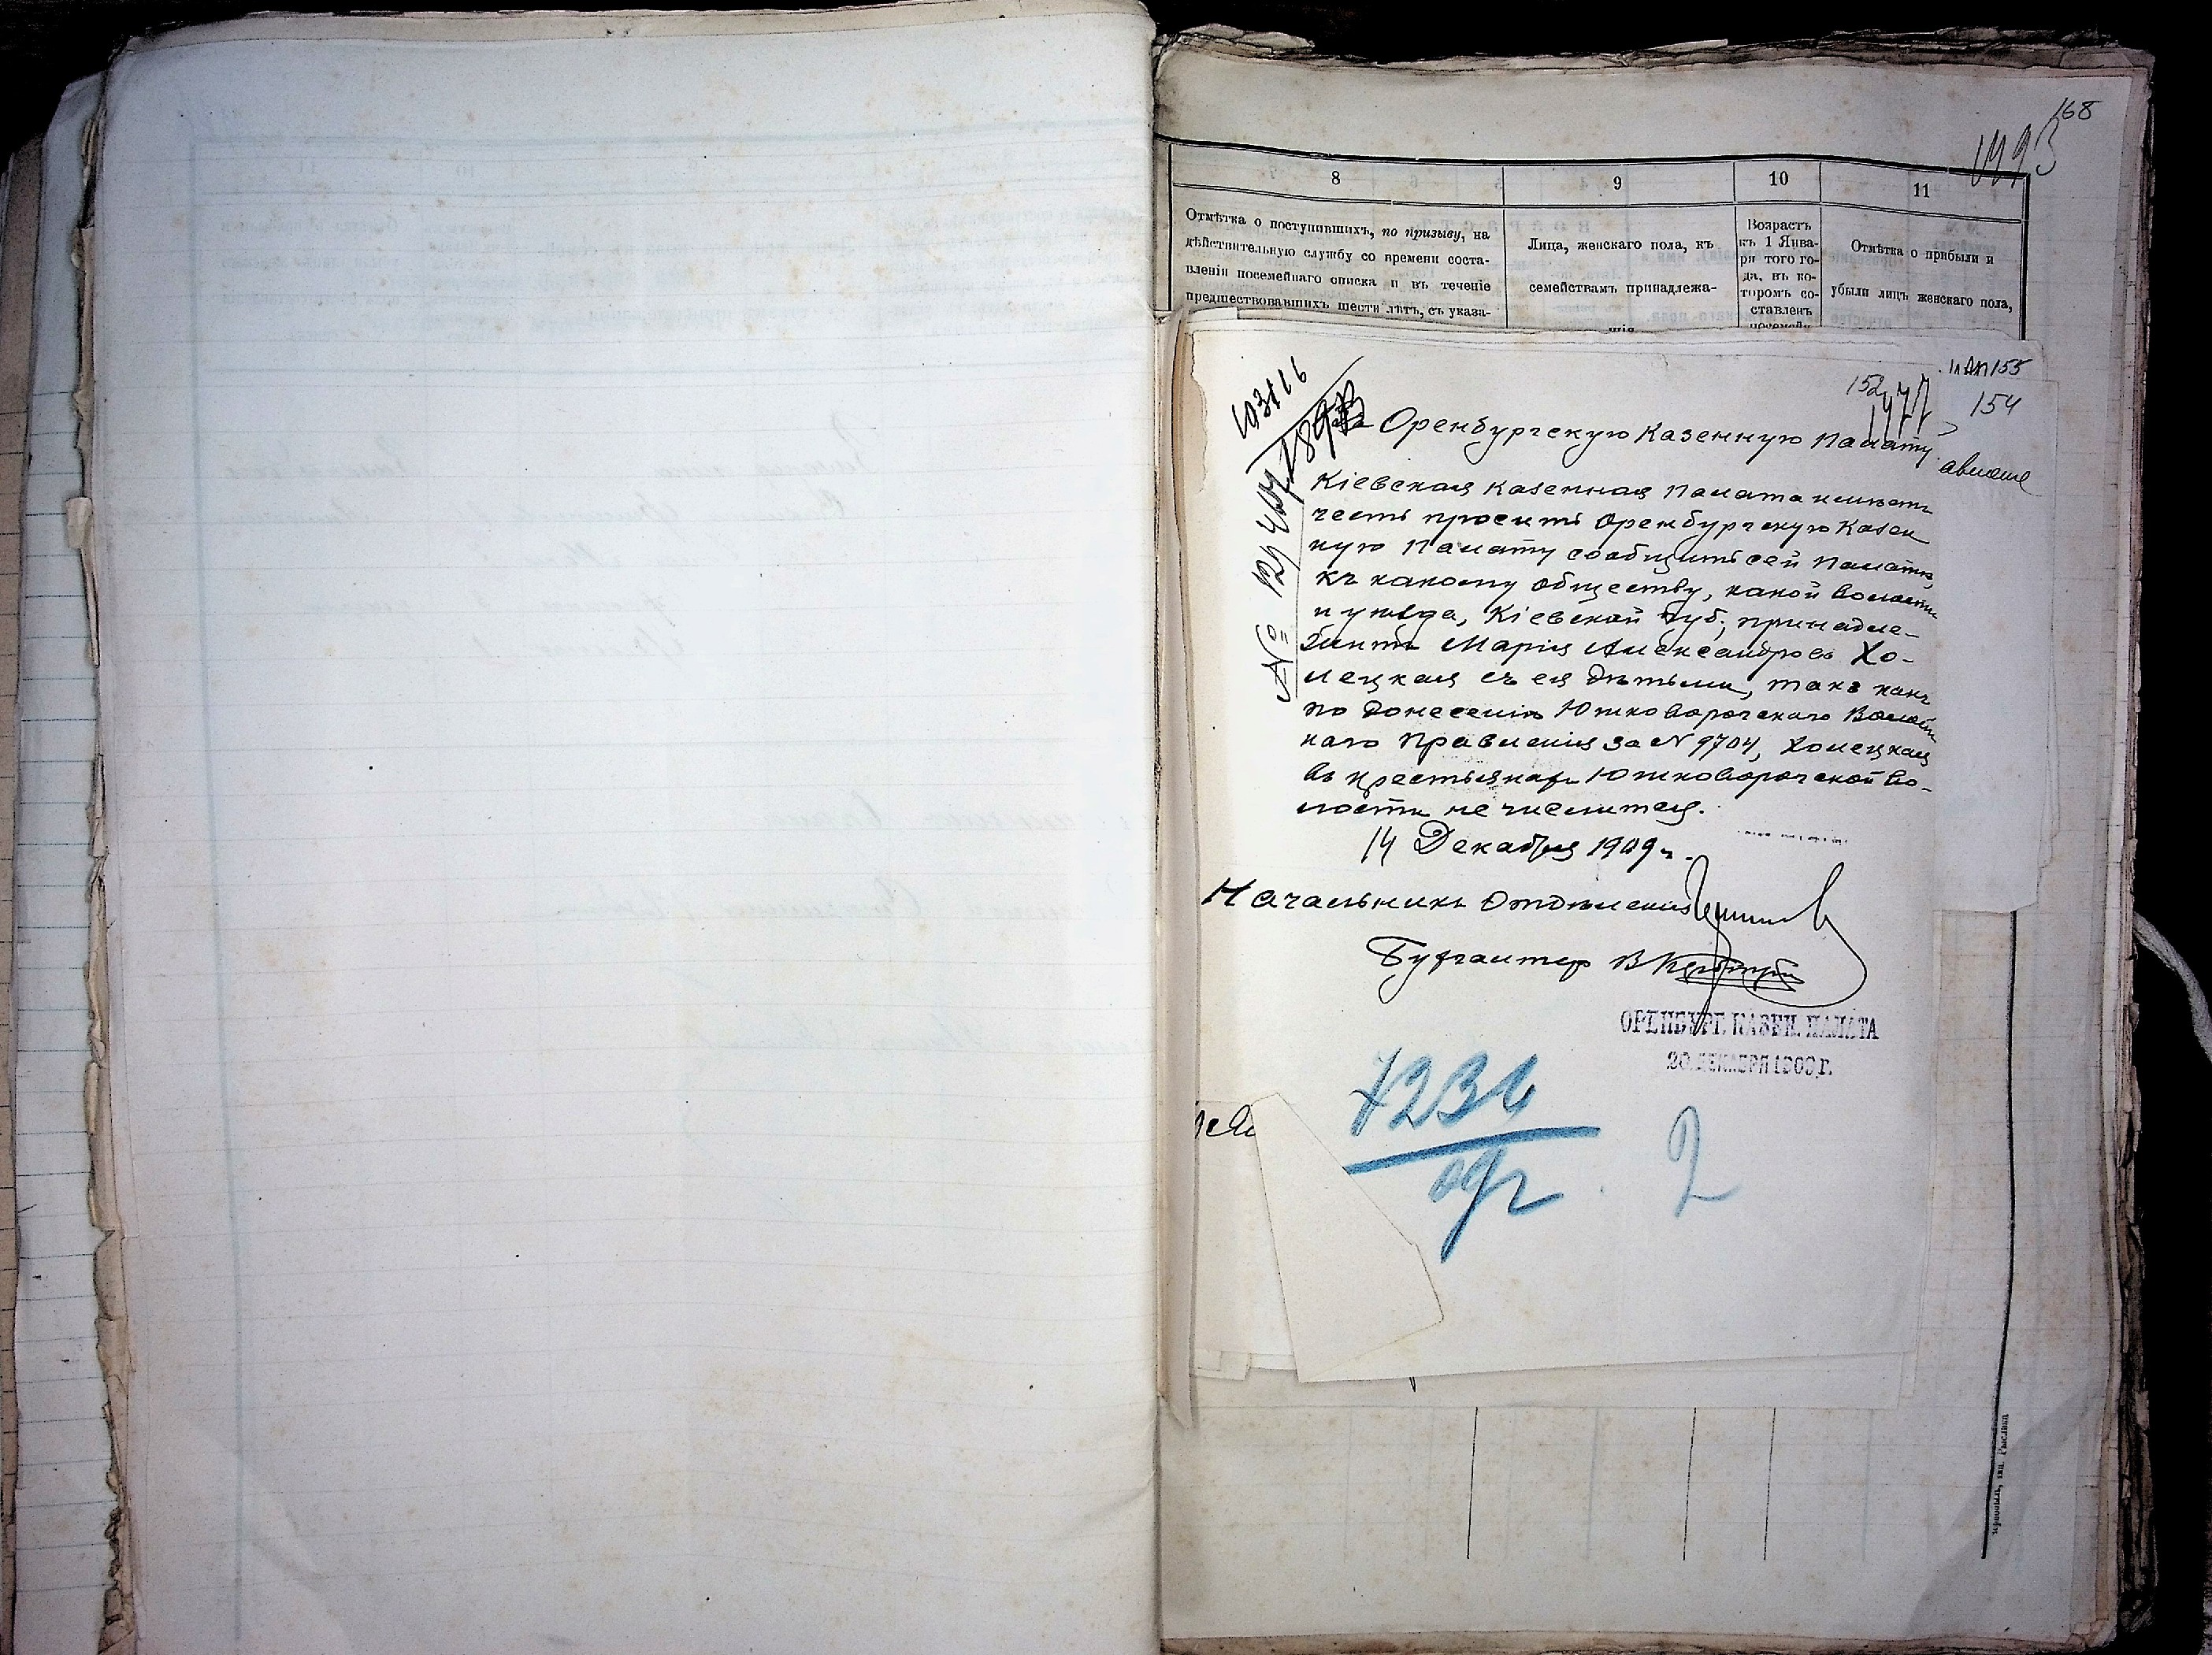 168
8
9
10
11
Отмѣтка о поступившихъ, по призыву, на
дѣйствительную службу со времени соста-
вленія посемейнаго списка и въ теченіе
предшествовавшихъ шести лѣтъ, съ указа-
Лица, женскаго пола, къ
семействамъ принадлежа-
щія
Возрастъ
къ 1 Янва-
ря того го-
да, въ ко-
торомъ со-
ставленъ
посемей-
Отмѣтка о прибыли и
убыли лицъ женскаго пола,
155
152
1477
154
Въ Оренбургскую Казенную Палату
Кіевская Казенная Палата имѣетъ
честь просить Оренбургскую Казен
ную Палату сообщить сей Палатѣ,
къ какому обществу, какой волости
и уѣзда, Кіевской губ., принадле-
житъ Марія Александрова Хо-
лецкая съ ея дѣтьми, такъ какъ
по донесенію Южковорогскаго Волост
наго Правленія за № 9704, Холецкая
въ крестьянахъ Южковорогской во-
лости не числится.
14 Декабря 1909 г.
Начальникъ Отдѣленія
Бухгалтер В
ОРЕНБУРГ. КАЗЕН. ПАЛАТА
20 ДЕКАБРЯ 1909 г.
7236
09 г.
2